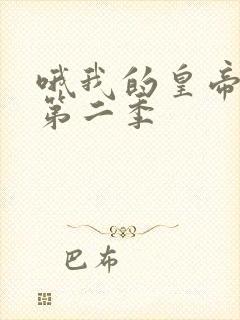 哦我的皇帝
第二季
巴布